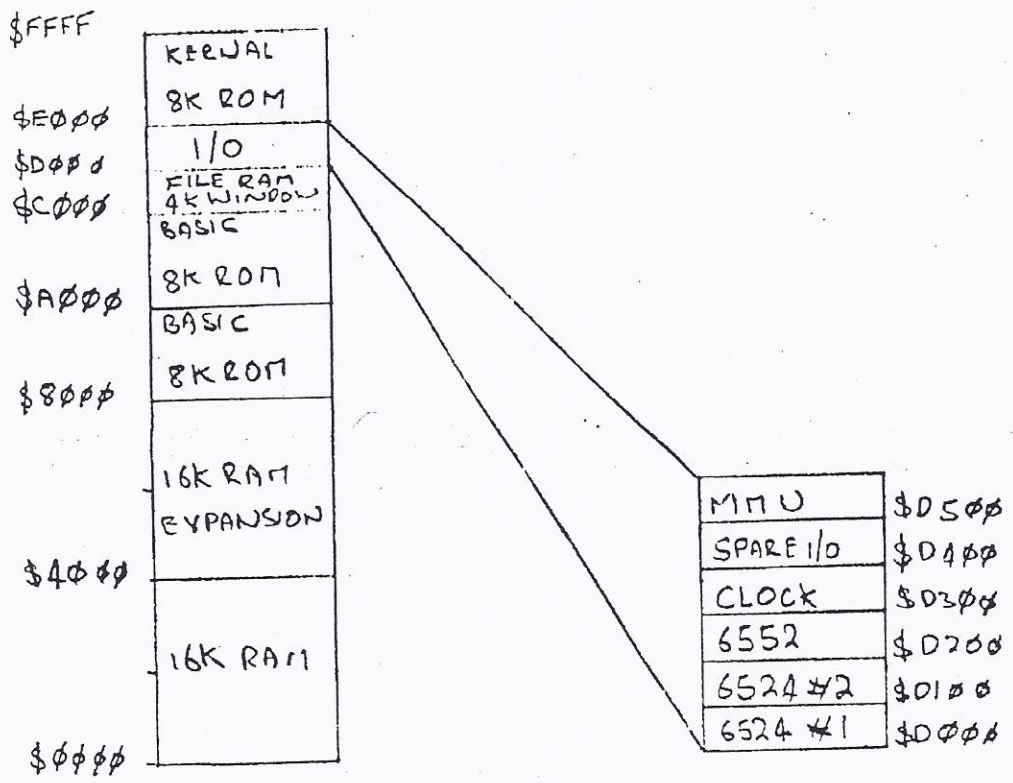 $FFFF
KERNAL
8K ROM
$EØØØ
I/O
$DØØØ
FILE RAM
4K WINDOW
$CØØØ
BASIC
8K ROM
$AØØØ
BASIC
8K ROM
$8ØØØ
16K RAM
EXPANSION
$4ØØØ
16K RAM
$ØØØØ
MMU $D5ØØ
SPARE I/O $D4ØØ
CLOCK $D3ØØ
6552 $D2ØØ
6524 #2 $D1ØØ
6524 #1 $DØØØ